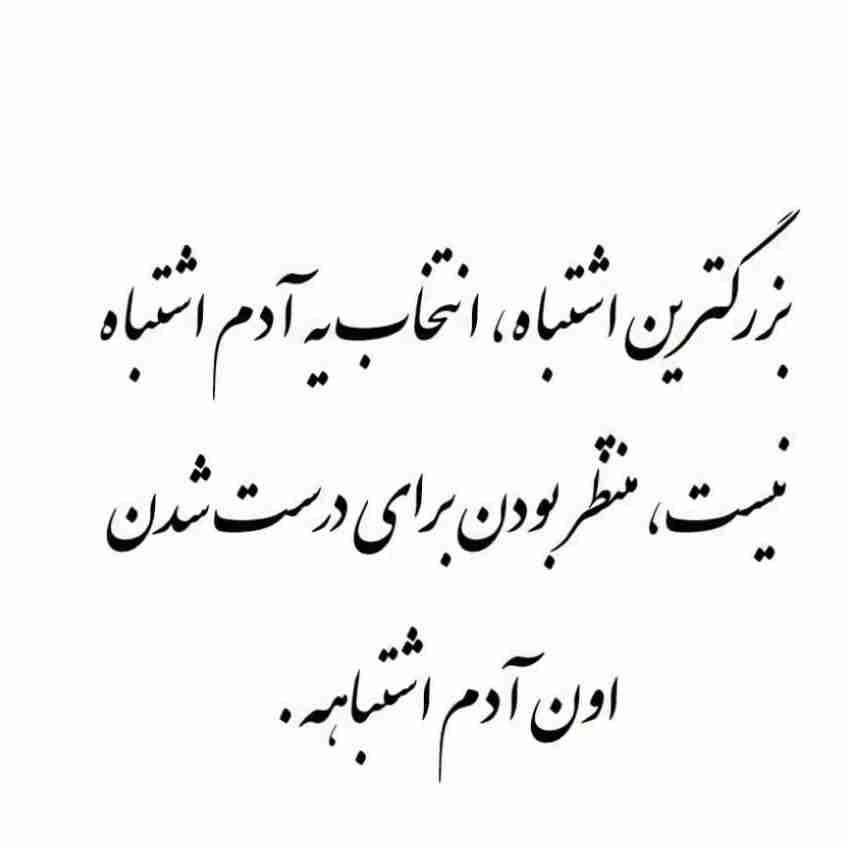 بزرگترین اشتباه، انتخاب یه آدم اشتباه
نیست، منتظر بودن برای درست شدن
اون آدم اشتباهه.